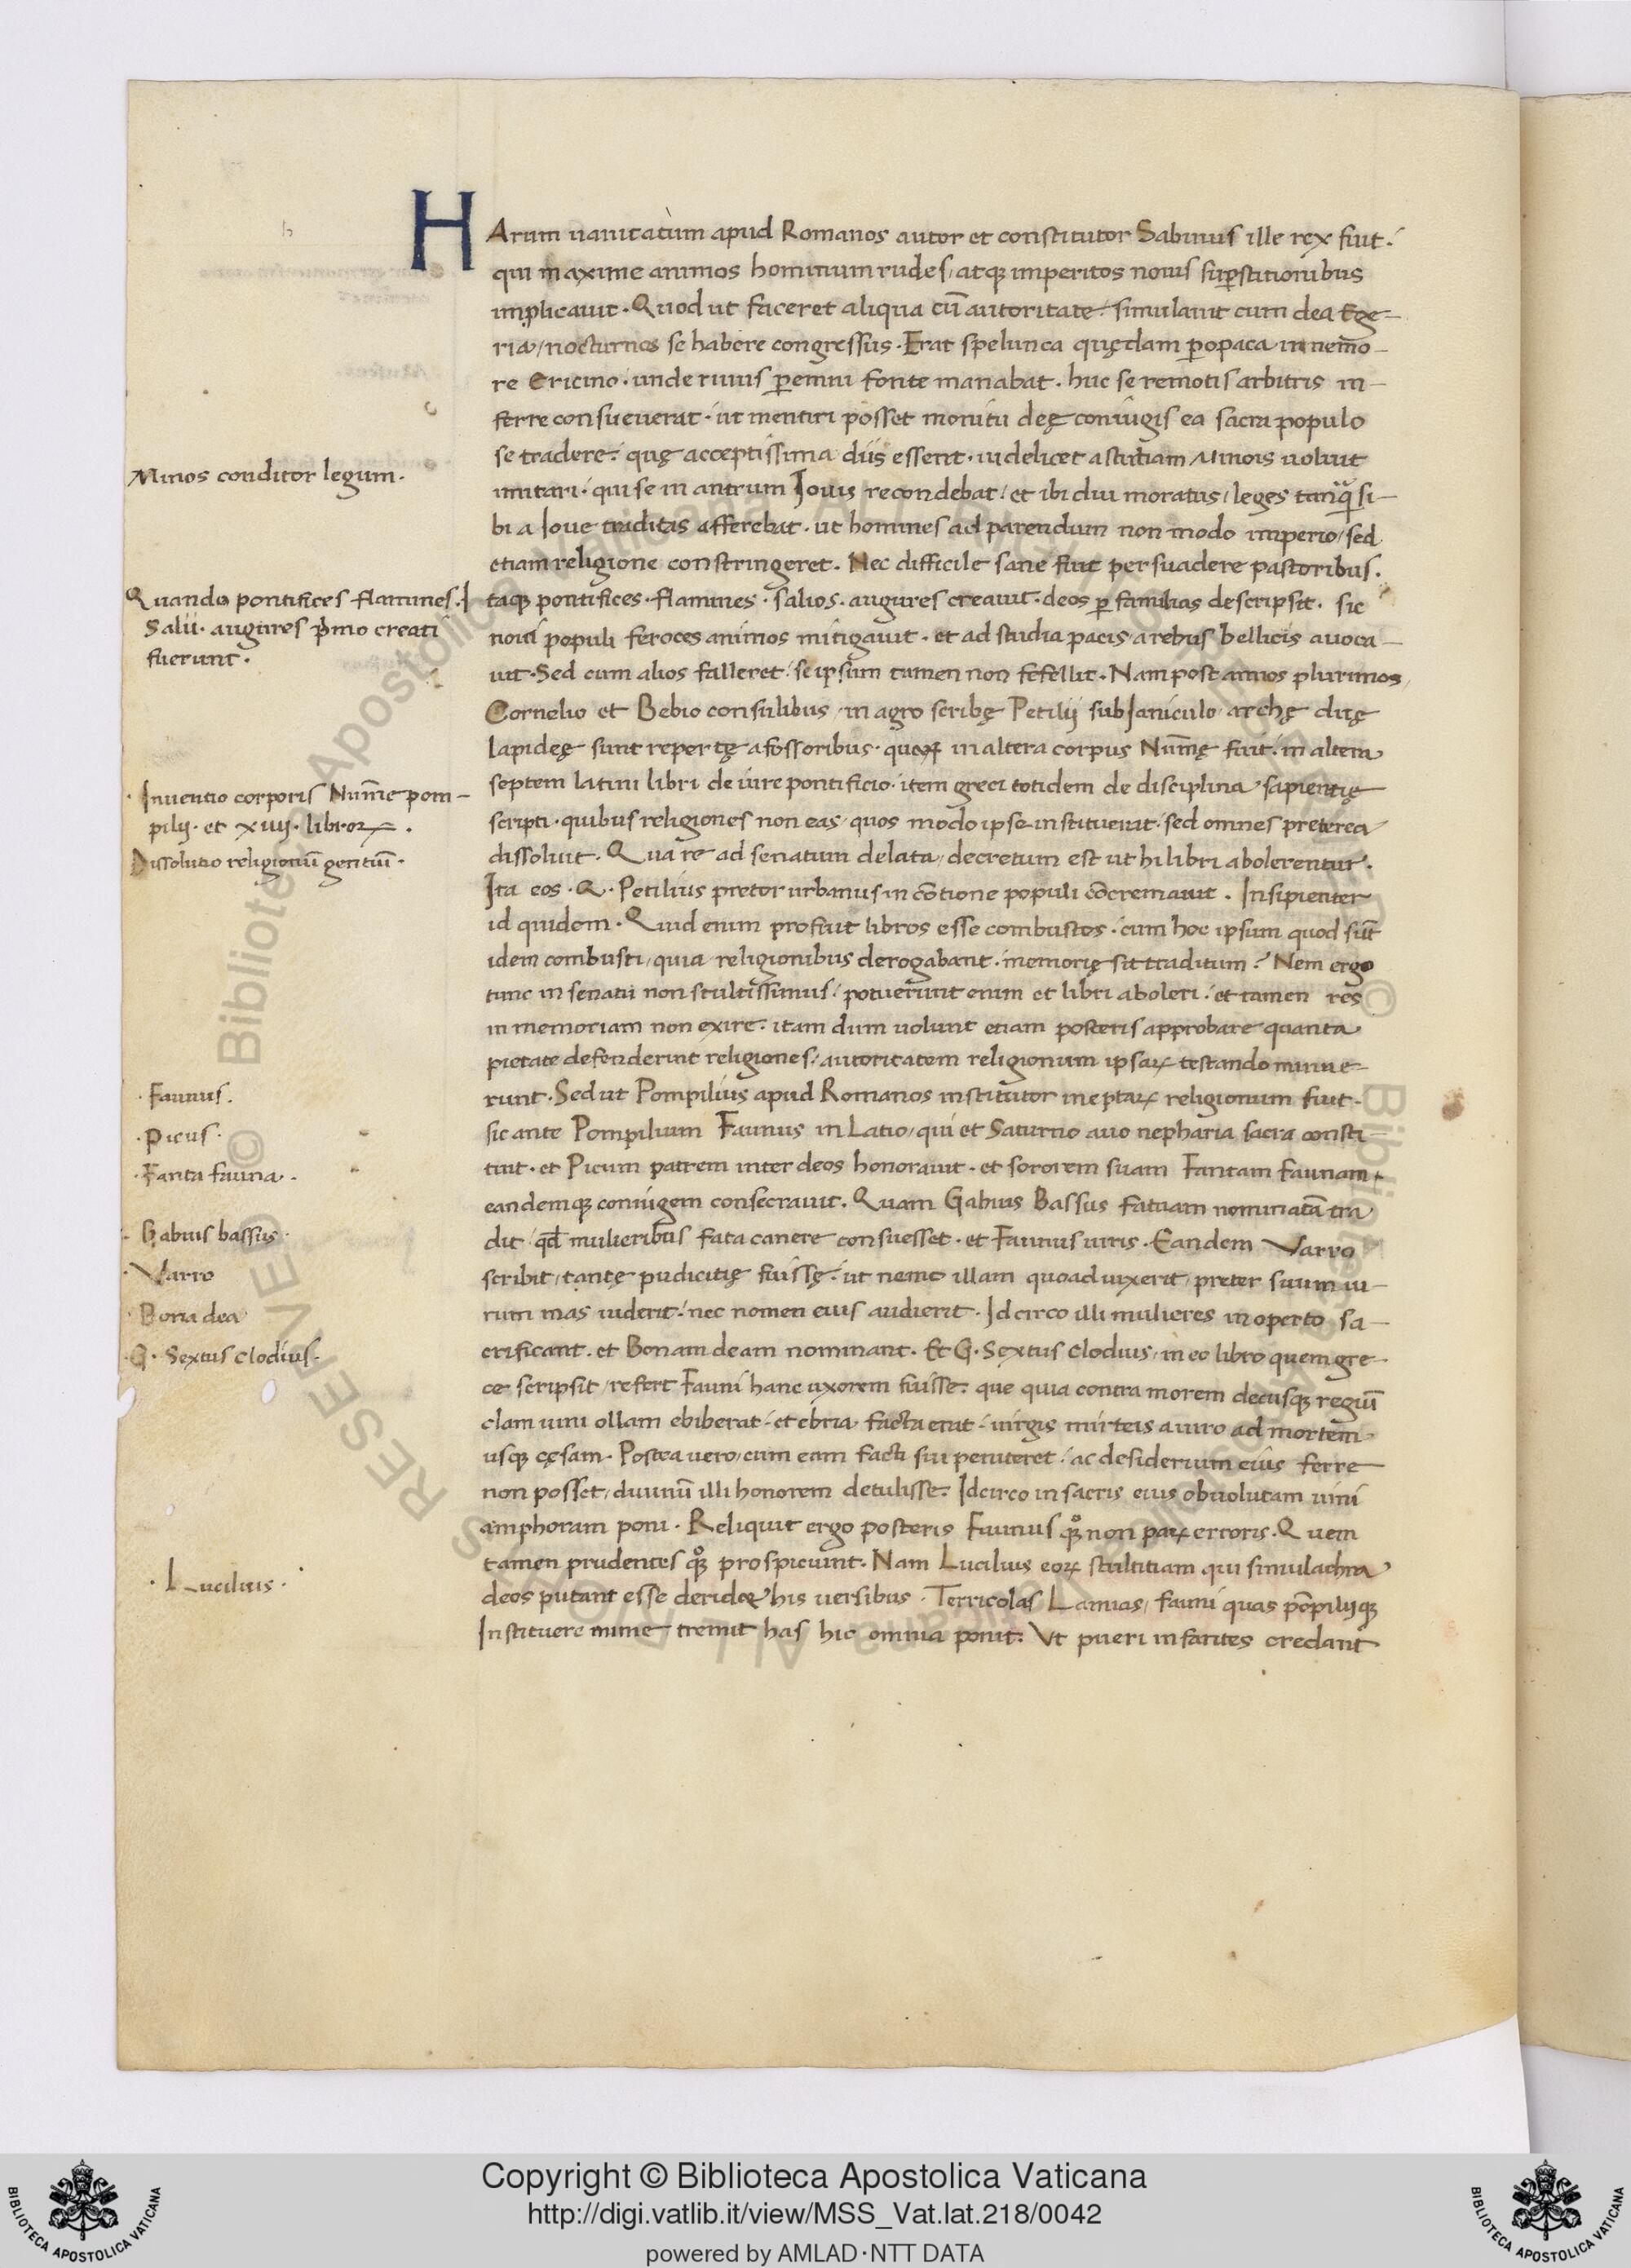 HArum uanitatum apud Romanos autor et constitutor Sabinus ille rex fuit.
qui maxime animos hominum rudes, atq; imperitos nouis suꝑstitionibus
implicauit. Quod ut faceret aliqua cū autoritate. simulauit cum dea Ege-
ria, nocturnos se habere congressus. Erat spelunca quędam ꝑopaca in nemo-
re Ericino. unde riuus ꝑenni fonte manabat. huc se remotis arbitris in-
ferre consueuerat. ut mentiri posset monitu deę coniugis ea sacra populo
se tradere. quę acceptissima diis essent. uidelicet astutiam Minois uoluit
Minos conditor legum.
imitari. qui se in antrum Iouis recondebat. et ibi diu moratus, leges tanq̄ si-
bi a Ioue traditas afferebat. ut homines ad parendum non modo imperio, sed
etiam religione constringeret. Nec difficile sane fuit persuadere pastoribus.
Quando pontifices flamines.
Salii. augures p̄mo creati
fuerunt.
Itaq; pontifices. flamines. salios. augures creauit. deos ꝑ familias descripsit. sic
noui populi feroces animos mitigauit. et ad studia pacis a rebus bellicis auoca-
uit. Sed cum alios falleret. se ipsum tamen non fefellit. Nam post annos plurimos,
Cornelio et Bebio consulibus, in agro scribę Petilij sub Ianiculo, archę duę
lapideę sunt repertę a fossoribus. quoꝝ in altera corpus Num̄ę fuit. in altera
Inuentio corporis Num̄e pom-
pilij. et xiiij. libroꝝ.
septem latini libri de iure pontificio. item greci totidem de disciplina sapientię
scripti. quibus religiones non eas, quos modo ipse instituerat. sed omnes preterea
Dissolutio religionū gentiū.
dissoluit. Qua re ad senatum delata, decretum est ut hi libri abolerentur.
Ita eos. Q. Petilius pretor urbanus in cōtione populi cōcremauit. Insipienter
id quidem. Quid enim profuit libros esse combustos. cum hoc ipsum quod sūt
idem combusti, quia religionibus derogabant. memorię sit traditum? Nem ergo
tunc in senatu non stultissimus. potuerunt enim et libri aboleri. et tamen res
in memoriam non exire. itam dum uolunt etiam posteris approbare quanta
pietate defenderint religiones. autoritatem religionum ipsaꝝ testando minue-
Faunus.
runt. Sed ut Pompilius apud Romanos institutor ineptaꝝ religionum fuit.
Picus.
sic ante Pompilium Faunus in Latio, qui et Saturno auo nepharia sacra consti-
Fanta fauna.
tuit. et Picum patrem inter deos honorauit. et sororem suam Fantam Faunam.
eandemq; coniugem consecrauit. Quam Gabius Bassus Fatuam nominatā tra
Gabius bassus.
dit. qd̄ mulieribus fata canere consuesset. et Faunus uiris. Eandem Varro
Varro
scribit, tantę pudicitię fuissę. ut nemo illam quoad uixerit, preter suum ui-
Bona dea
rum mas uiderit. nec nomen eius audierit. Idcirco illi mulieres in operto sa-
G. Sextus Clodius.
crificant. et Bonam deam nominant. Et G. Sextus Clodius, in eo libro quem gre-
ce scripsit, refert Fauni hanc uxorem fuisse. que quia contra morem decusq; regiū
clam uini ollam ebiberat. et ebria facta erat. uirgis mirteis a uiro ad mortem
usq; cęsam. Postea uero, cum eam facti sui peniteret. ac desiderium eius ferre
non posset, diuinū illi honorem detulisse. Idcirco in sacris eius obuolutam uini
amphoram poni. Reliquit ergo posteris Faunus q̊q; non paꝝ erroris. Quem
Lucilius.
tamen prudentes q̊q; prospiciunt. Nam Lucilius eoꝝ stultitiam qui simulachra
deos putant esse deridet his uersibus. Terricolas Lamias, Fauni quas pōpilijq;
Instituere nume tremit has hic omnia ponit. Vt pueri infantes credant
Copyright © Biblioteca Apostolica Vaticana
http://digi.vatlib.it/view/MSS_Vat.lat.218/0042
powered by AMLAD·NTT DATA